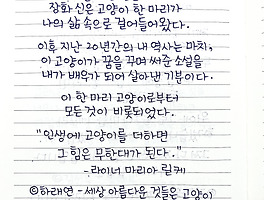 장화 신은 고양이 한 마리가
나의 삶 속으로 걸어들어왔다.
이후 지난 20년간의 내 역사는 마치,
이 고양이가 꿈을 꾸며 써준 소설을
내가 배우가 되어 살아낸 기분이다.
이 한 마리 고양이로부터
모든 것이 비롯되었다.
"인생에 고양이를 더하면
그 힘은 무한대가 된다."
- 라이너 마리아 릴케
©하래연 - 세상 아름다운 것들은 고양이